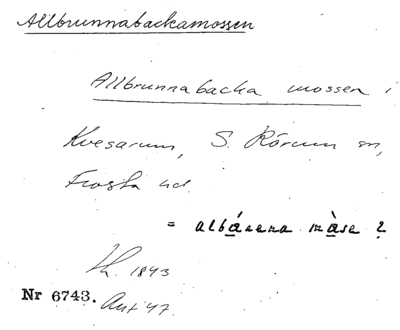 Allbrunnabackamossen
Allbrunnabacka mossen i
Kvesarum, S. Rörum sn,
Frosta hd.
= albánena màsa ?
1843
Nr 6743.